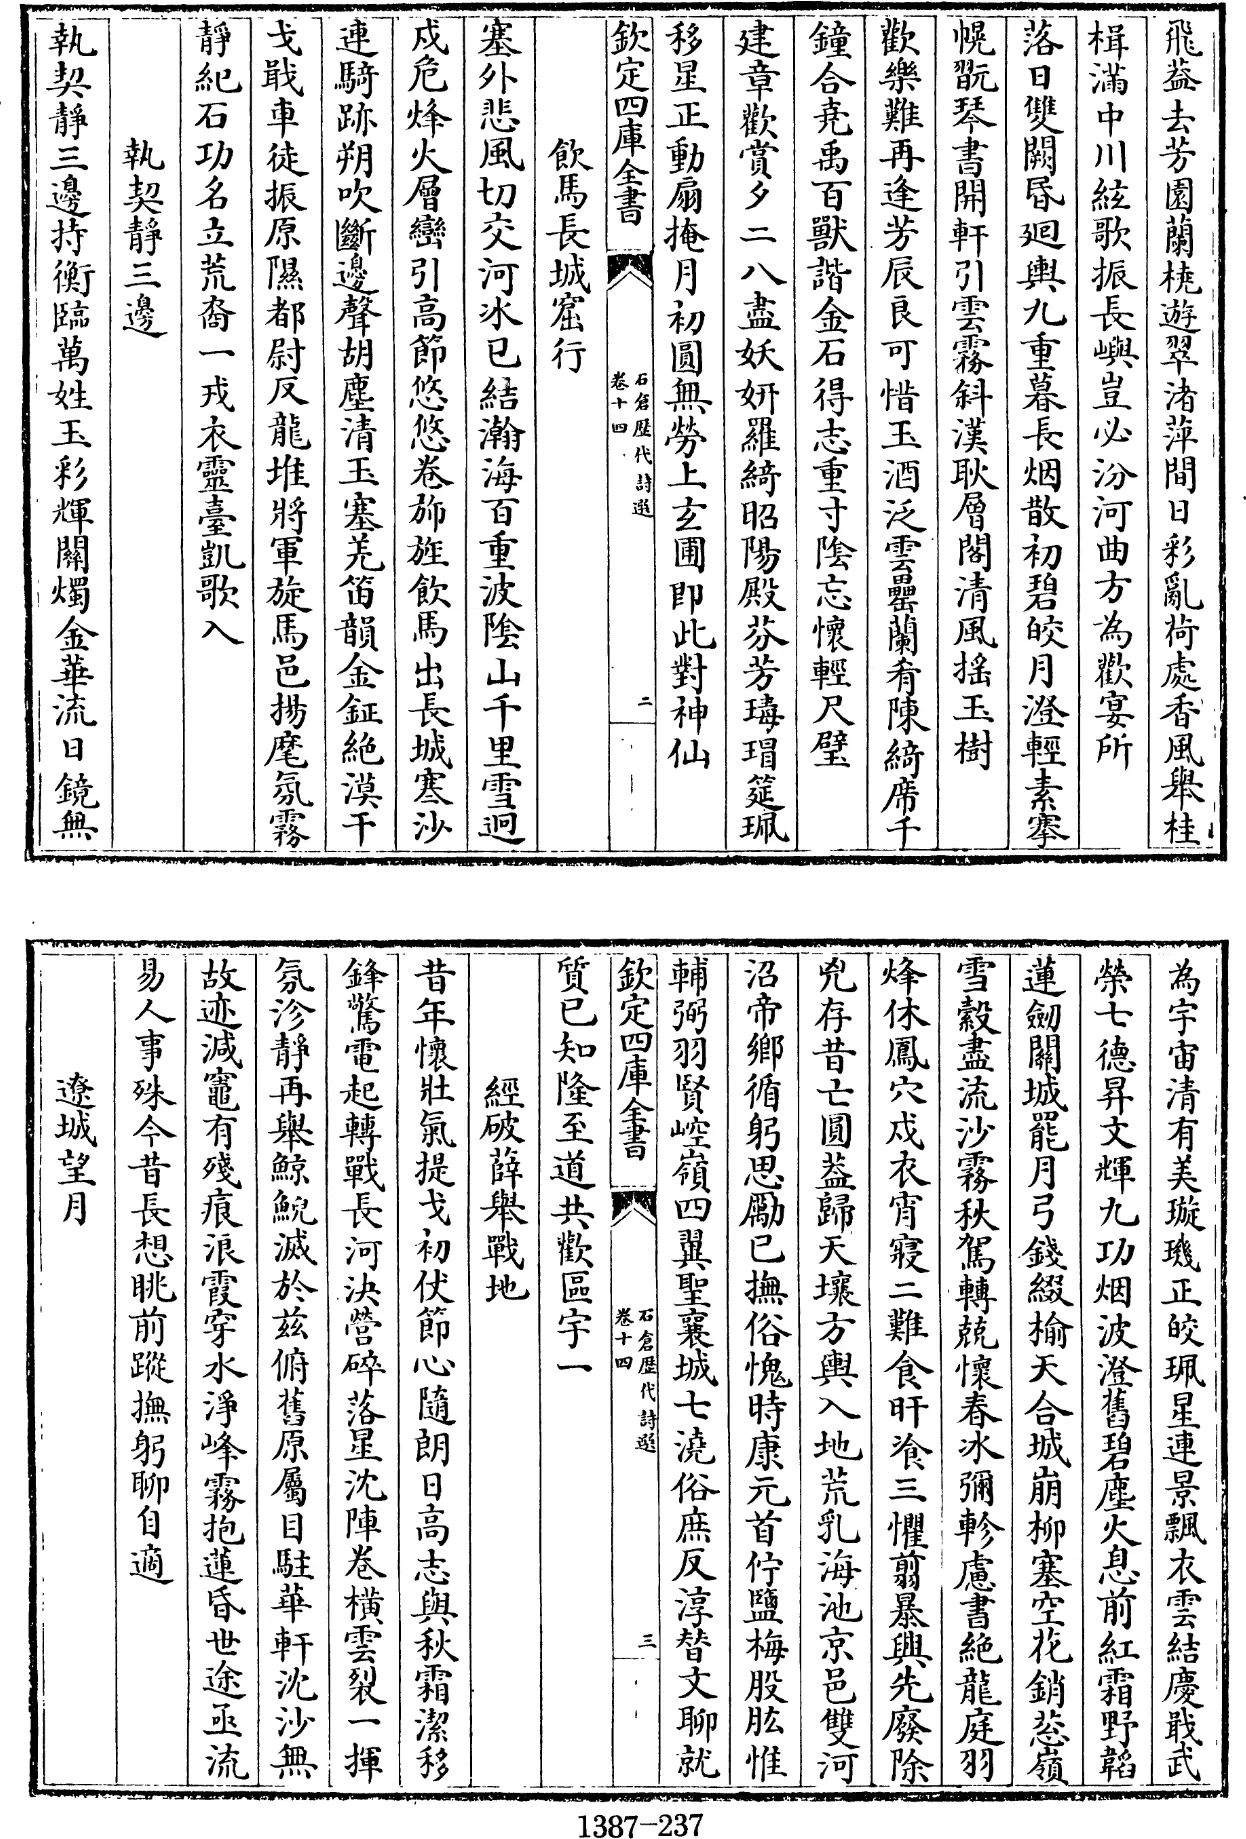 飛葢去芳園蘭橈遊翠渚萍間日彩亂荷處香風舉桂
楫滿中川絃歌振長嶼豈必汾河曲方為歡宴所
落日雙闕昏廻輿九重暮長烟散初碧皎月澄輕素搴
幌翫琴書開軒引雲霧斜漢耿層閣清風揺玉樹
歡樂難再逢芳辰良可惜玉酒泛雲罍蘭肴陳綺席千
鐘合堯禹百獸諧金石得志重寸隂忘懷輕尺璧
建章歡賞夕二八盡妖妍羅綺昭陽殿芬芳瑇瑁筵珮
移星正動扇掩月初圓無勞上玄圃即此對神仙
欽定四庫全書
石倉歴代詩選
卷十四
二
飲馬長城窟行
塞外悲風切交河氷已結瀚海百重波隂山千里雪迥
戍危烽火層巒引高節悠悠卷斾旌飲馬出長城塞沙
連騎跡朔吹斷邊聲胡塵清玉塞羌笛韻金鉦絶漠干
戈戢車徒振原隰都尉反龍堆將軍旋馬邑揚麾氛霧
靜紀石功名立荒裔一戎衣靈臺凱歌入
執契靜三邊
執契靜三邊持衡臨萬姓玉彩輝關燭金華流日鏡無
為宇宙清有美璇璣正皎珮星連景飄衣雲結慶戢武
榮七德昇文輝九功烟波澄舊碧塵火息前紅霜野韜
蓮劒關城罷月弓錢綴榆天合城崩柳塞空花銷葱嶺
雪縠盡流沙霧秋駕轉兢懷春氷彌軫慮書絶龍庭羽
烽休鳳穴戍衣宵寢二難食旰飡三懼翦暴興先廢除
兇存昔亡圓葢歸天壤方輿入地荒乳海池京邑雙河
沼帝鄉循躬思勵己撫俗愧時康元首佇鹽梅股肱惟
輔弼羽賢崆嶺四翼聖襄城七澆俗庶反淳替文聊就
欽定四庫全書
石倉歴代詩選
卷十四
三
質已知隆至道共歡區宇一
經破薛舉戰地
昔年懷壯氣提戈初伏節心隨朗日高志與秋霜潔移
鋒驚電起轉戰長河決營碎落星沈陣卷横雲裂一揮
氛沴靜再舉鯨鯢滅於兹俯舊原屬目駐華軒沈沙無
故迹減竈有殘痕浪霞穿水淨峰霧抱蓮昏世途亟流
易人事殊今昔長想眺前蹤撫躬聊自適
遼城望月
1387-237